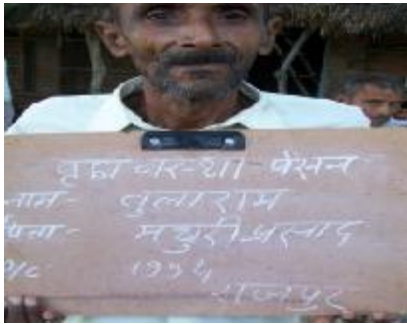 वृद्धा वस्था पेंसन
नाम- तुलाराम
पिता- मथुरी प्रसाद
१९५५
राजपुर